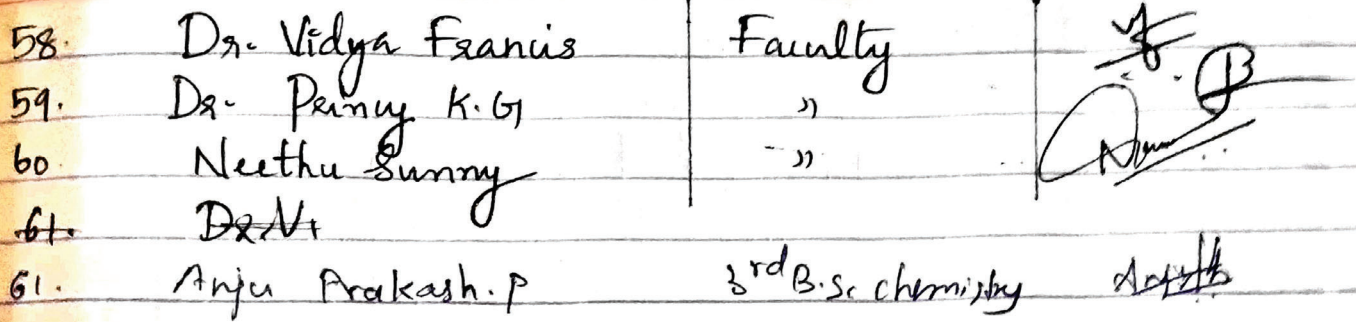 58. Dr. Vidya Francis Faculty
59. Dr. Princy K.G "
60 Neethu Sunny "
61. Dr. Vi
61. Anju Prakash.P 3rd B.Sc chemistry